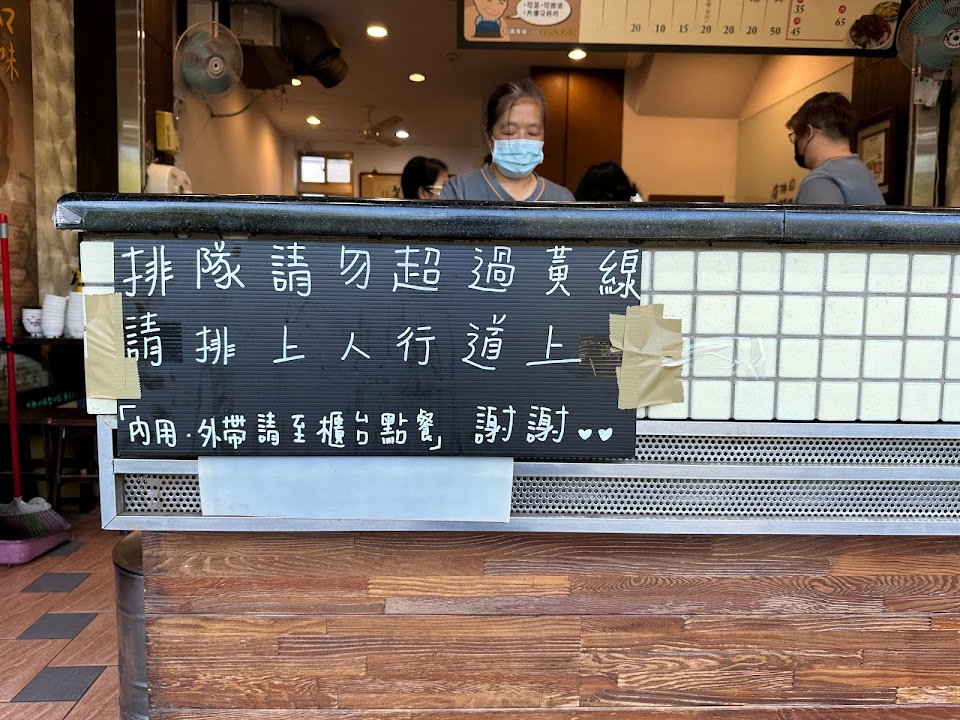 排隊請勿超過黃線
請排上人行道上
「內用.外帶請至櫃台點餐」謝謝..
20 10 15 20 20 20 50
35
45
65
味